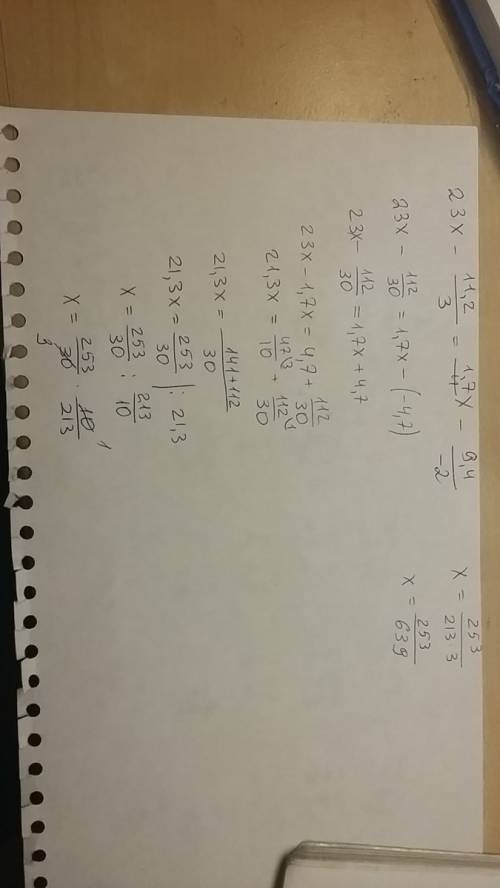 23x - 11,2/3 = 1,7x/1 - 9,4/-2
23x - 112/30 = 1,7x - (-4,7)
23x - 112/30 = 1,7x + 4,7
23x - 1,7x = 4,7 + 112/30
21,3x = 47/10 + 112/30
21,3x = 141+112/30
21,3x = 253/30 | : 21,3
x = 253/30 : 213/10
x = 253/30 · 10/213
x = 253/213·3
x = 253/639